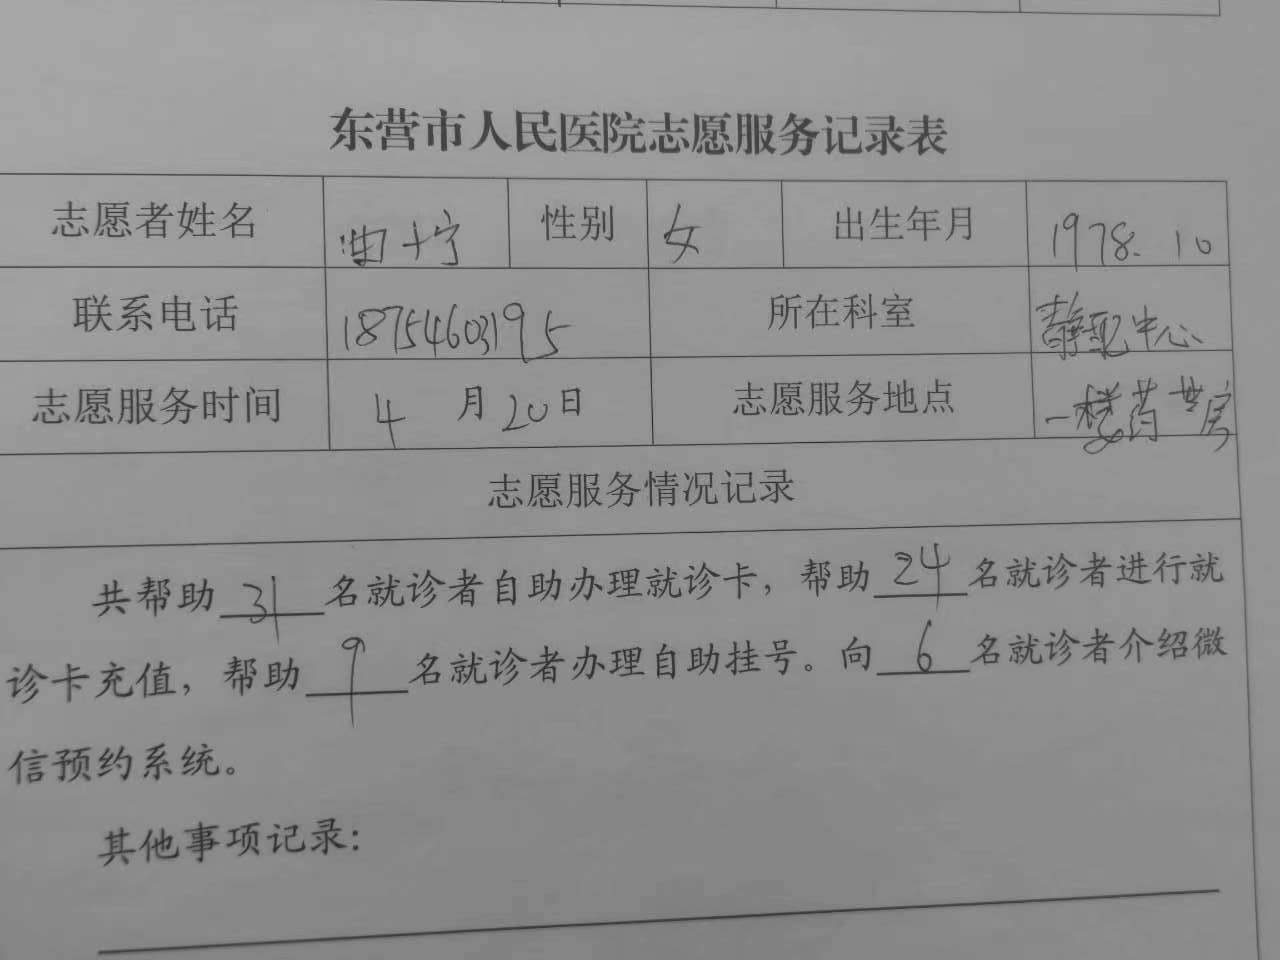 东营市人民医院志愿服务记录表
志愿者姓名 性别 女 出生年月 1978.10
联系电话 18754603195 所在科室 静配中心
志愿服务时间 4月20日 志愿服务地点 一楼药房
志愿服务情况记录
共帮助31名就诊者自助办理就诊卡，帮助24名就诊者进行就
诊卡充值，帮助9名就诊者办理自助挂号。向6名就诊者介绍微
信预约系统。
其他事项记录：